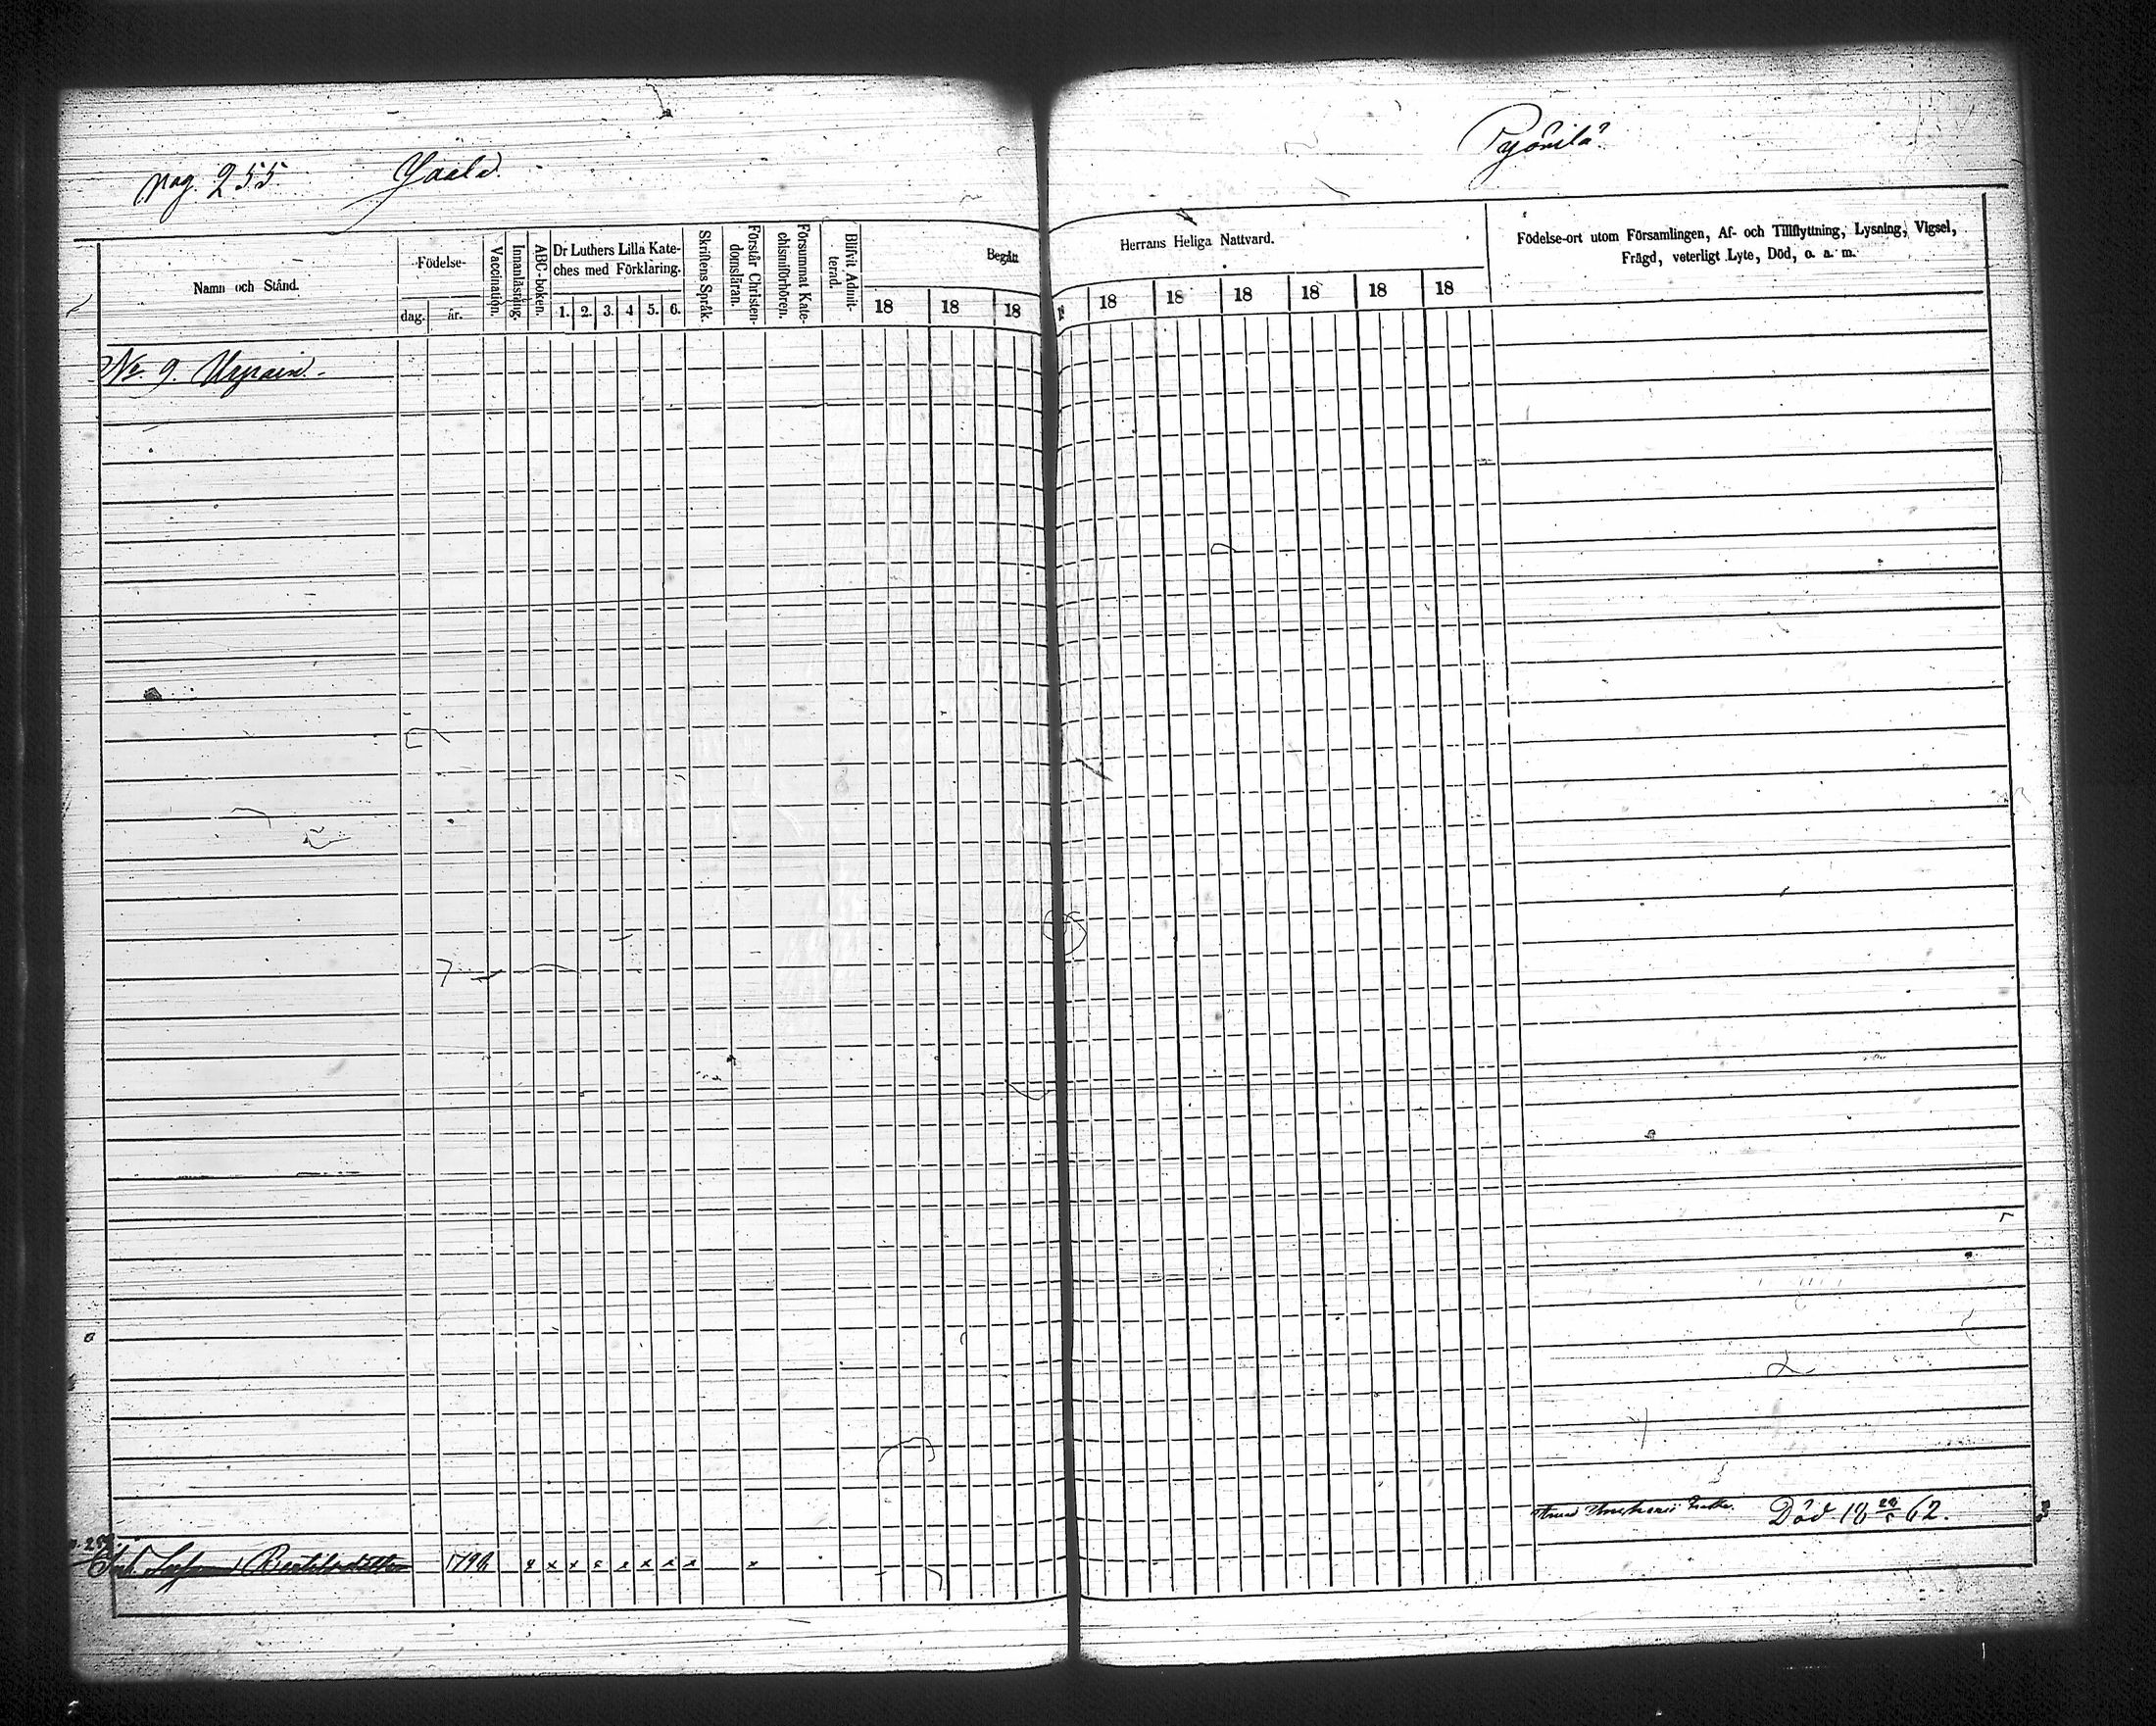 pag. 255.
Pyörilä
Namn och Stånd.
Födelse-
dag.
år.
Vaccination.
Innanläsning.
ABC-boken.
Dr Luthers Lilla Kate-
ches med Förklaring.
1. 2. 3. 4 5. 6.
Skriftens Språk.
Förstår Christen-
domsläran.
Försummat Kate-
chismiförhören.
Blifvit Admit-
terad.
Begått
18 18 18
Herrans Heliga Nattvard.
18 18 18 18 18 18
Födelse-ort utom Församlingen, Af- och Tillflyttning, Lysning, Vigsel,
Frägd, veterligt Lyte, Död, o. a. m.
No 9.
Död 18 62.
179
x x x x x x x x